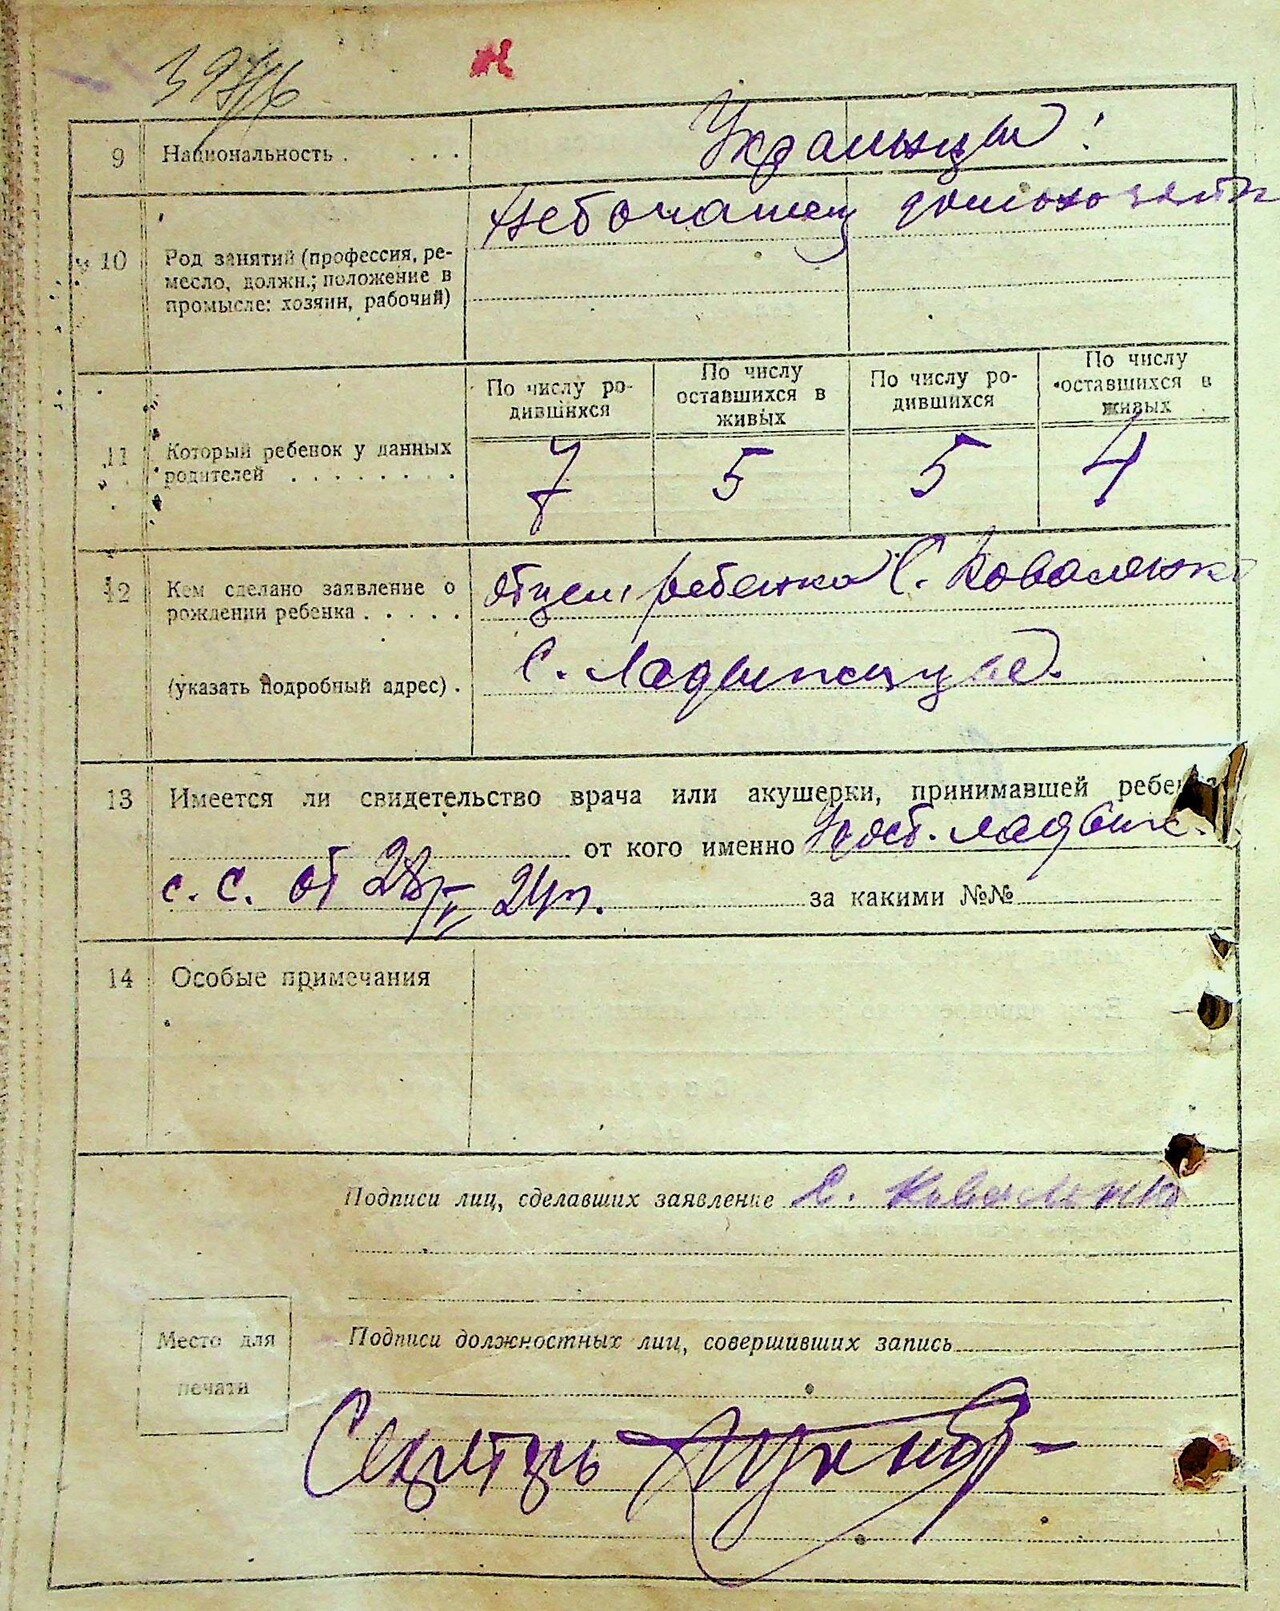 9 Национальность . . . . Украинцы
10 Род занятий (профессия, ре-
месло, должн.; положение в
промысле: хозяин, рабочий)
По числу ро-
дившихся
По числу
оставшихся в
живых
По числу ро-
дившихся
По числу
оставшихся в
живых
11 Который ребенок у данных
родителей . . . . . . .
7 5 5 4
12 Кем сделано заявление о
рождении ребенка . . . . .
отцем ребенка С. Коваленко
(указать подробный адрес) . с. Ладыжицы
13 Имеется ли свидетельство врача или акушерки, принимавшей
от кого именно
с. с. от 28/V 24г. за какими №№
14 Особые примечания
Подписи лиц, сделавших заявление С. Коваленко
Место для
печати
Подписи должностных лиц, совершивших запись